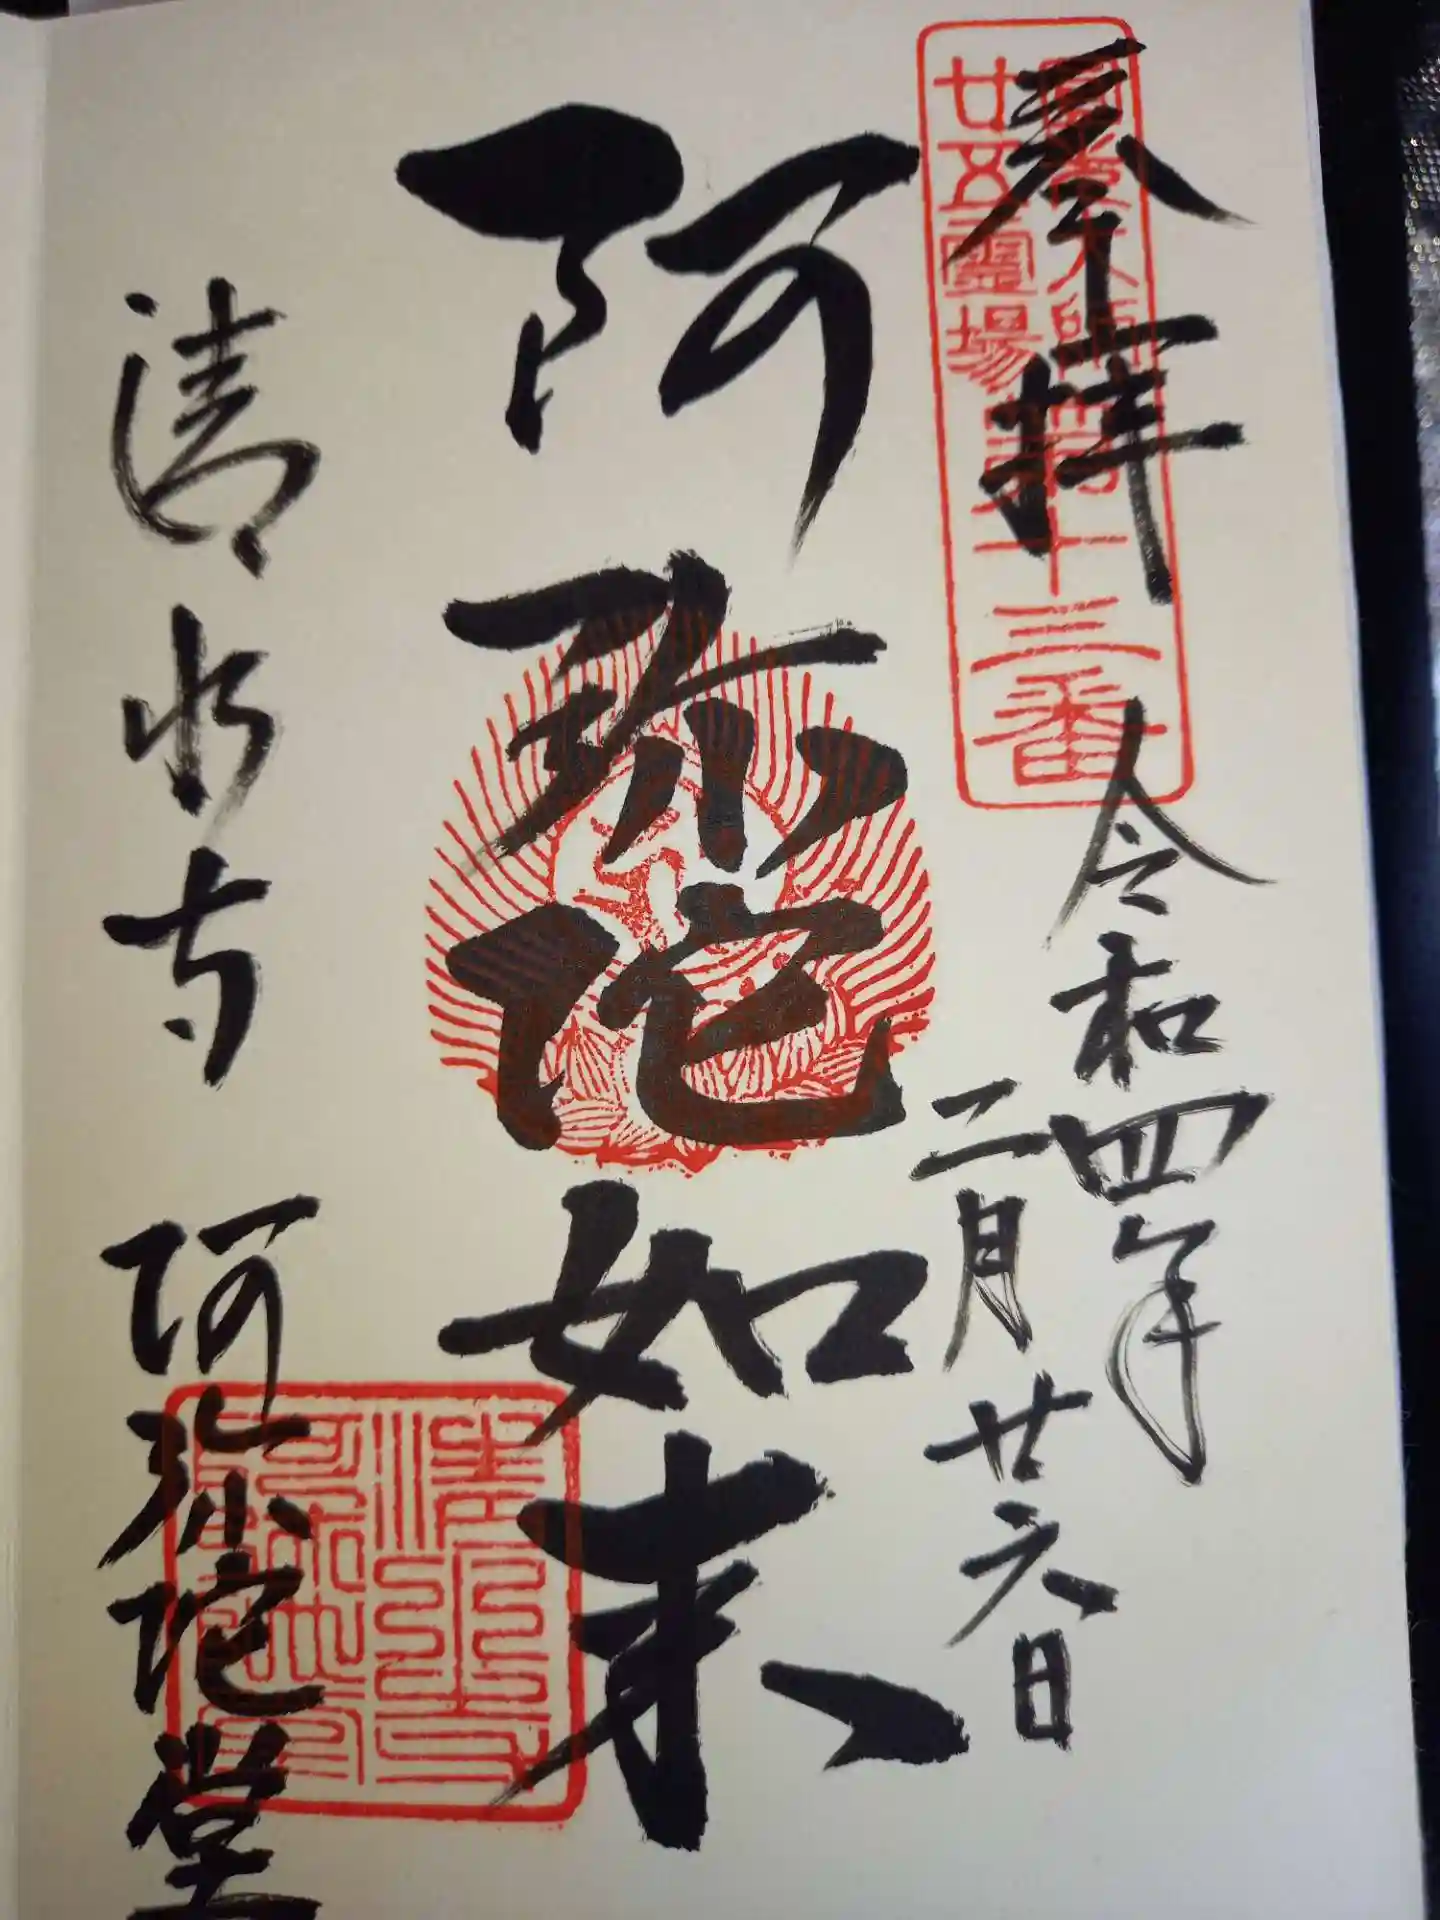 奉拝
圓光大師
廿五霊場第十三番
令和四年
二月廿六日
阿弥陀如来
清水寺 阿弥陀堂